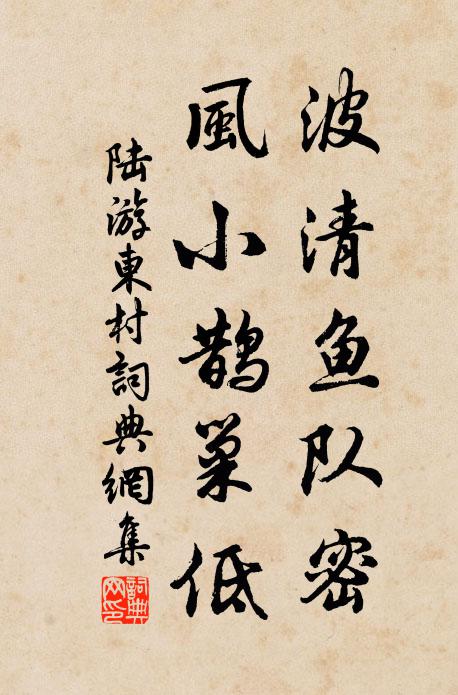 波清鱼队密
風小鹊巢低
陆游東村詞典網集
詞典网印